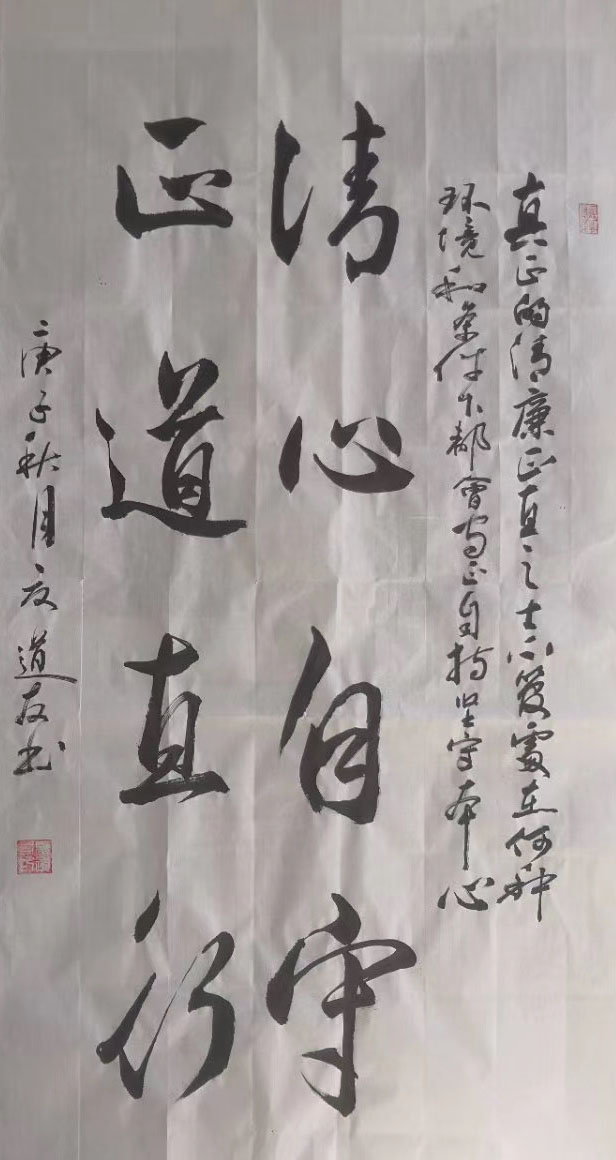 真正的清廉正直之士不管處在何种
环境和条件下都會守正自持坚守本心
清心自守
正道直行
庚子秋月道友书